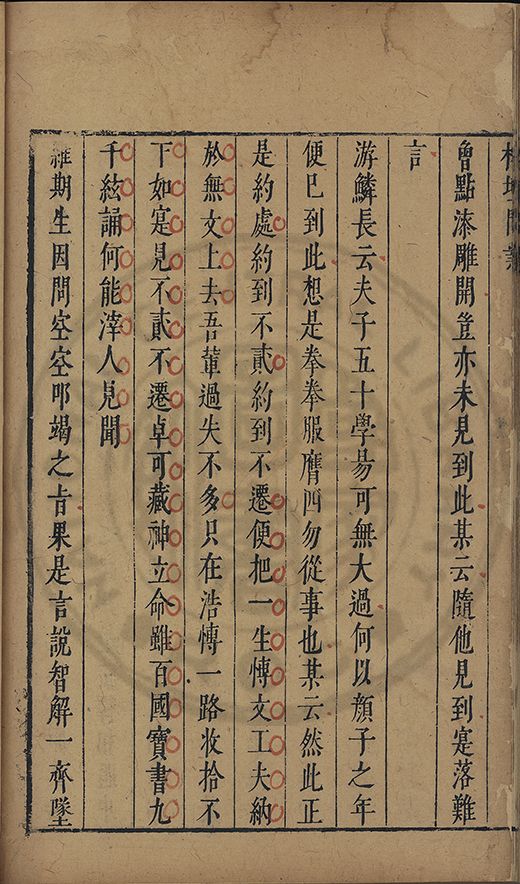 榕壇問業
曾點漆雕開豈亦未見到此某云隨他見到寔落難
言
游鱗長云夫子五十學昜可無大過何以顔子之年
便巳到此想是拳拳服膺四勿從事也某云然此正
是約處約到不貳約到不遷便把一生愽文工夫納
於無文上去吾輩過失不多只在浩愽一路收拾不
下如寔見不貳不遷卓可藏神立命雖百國寶書九
千絃誦何能滓人見聞
羅期生因問空空叩竭之㫖果是言說智解一齊墜